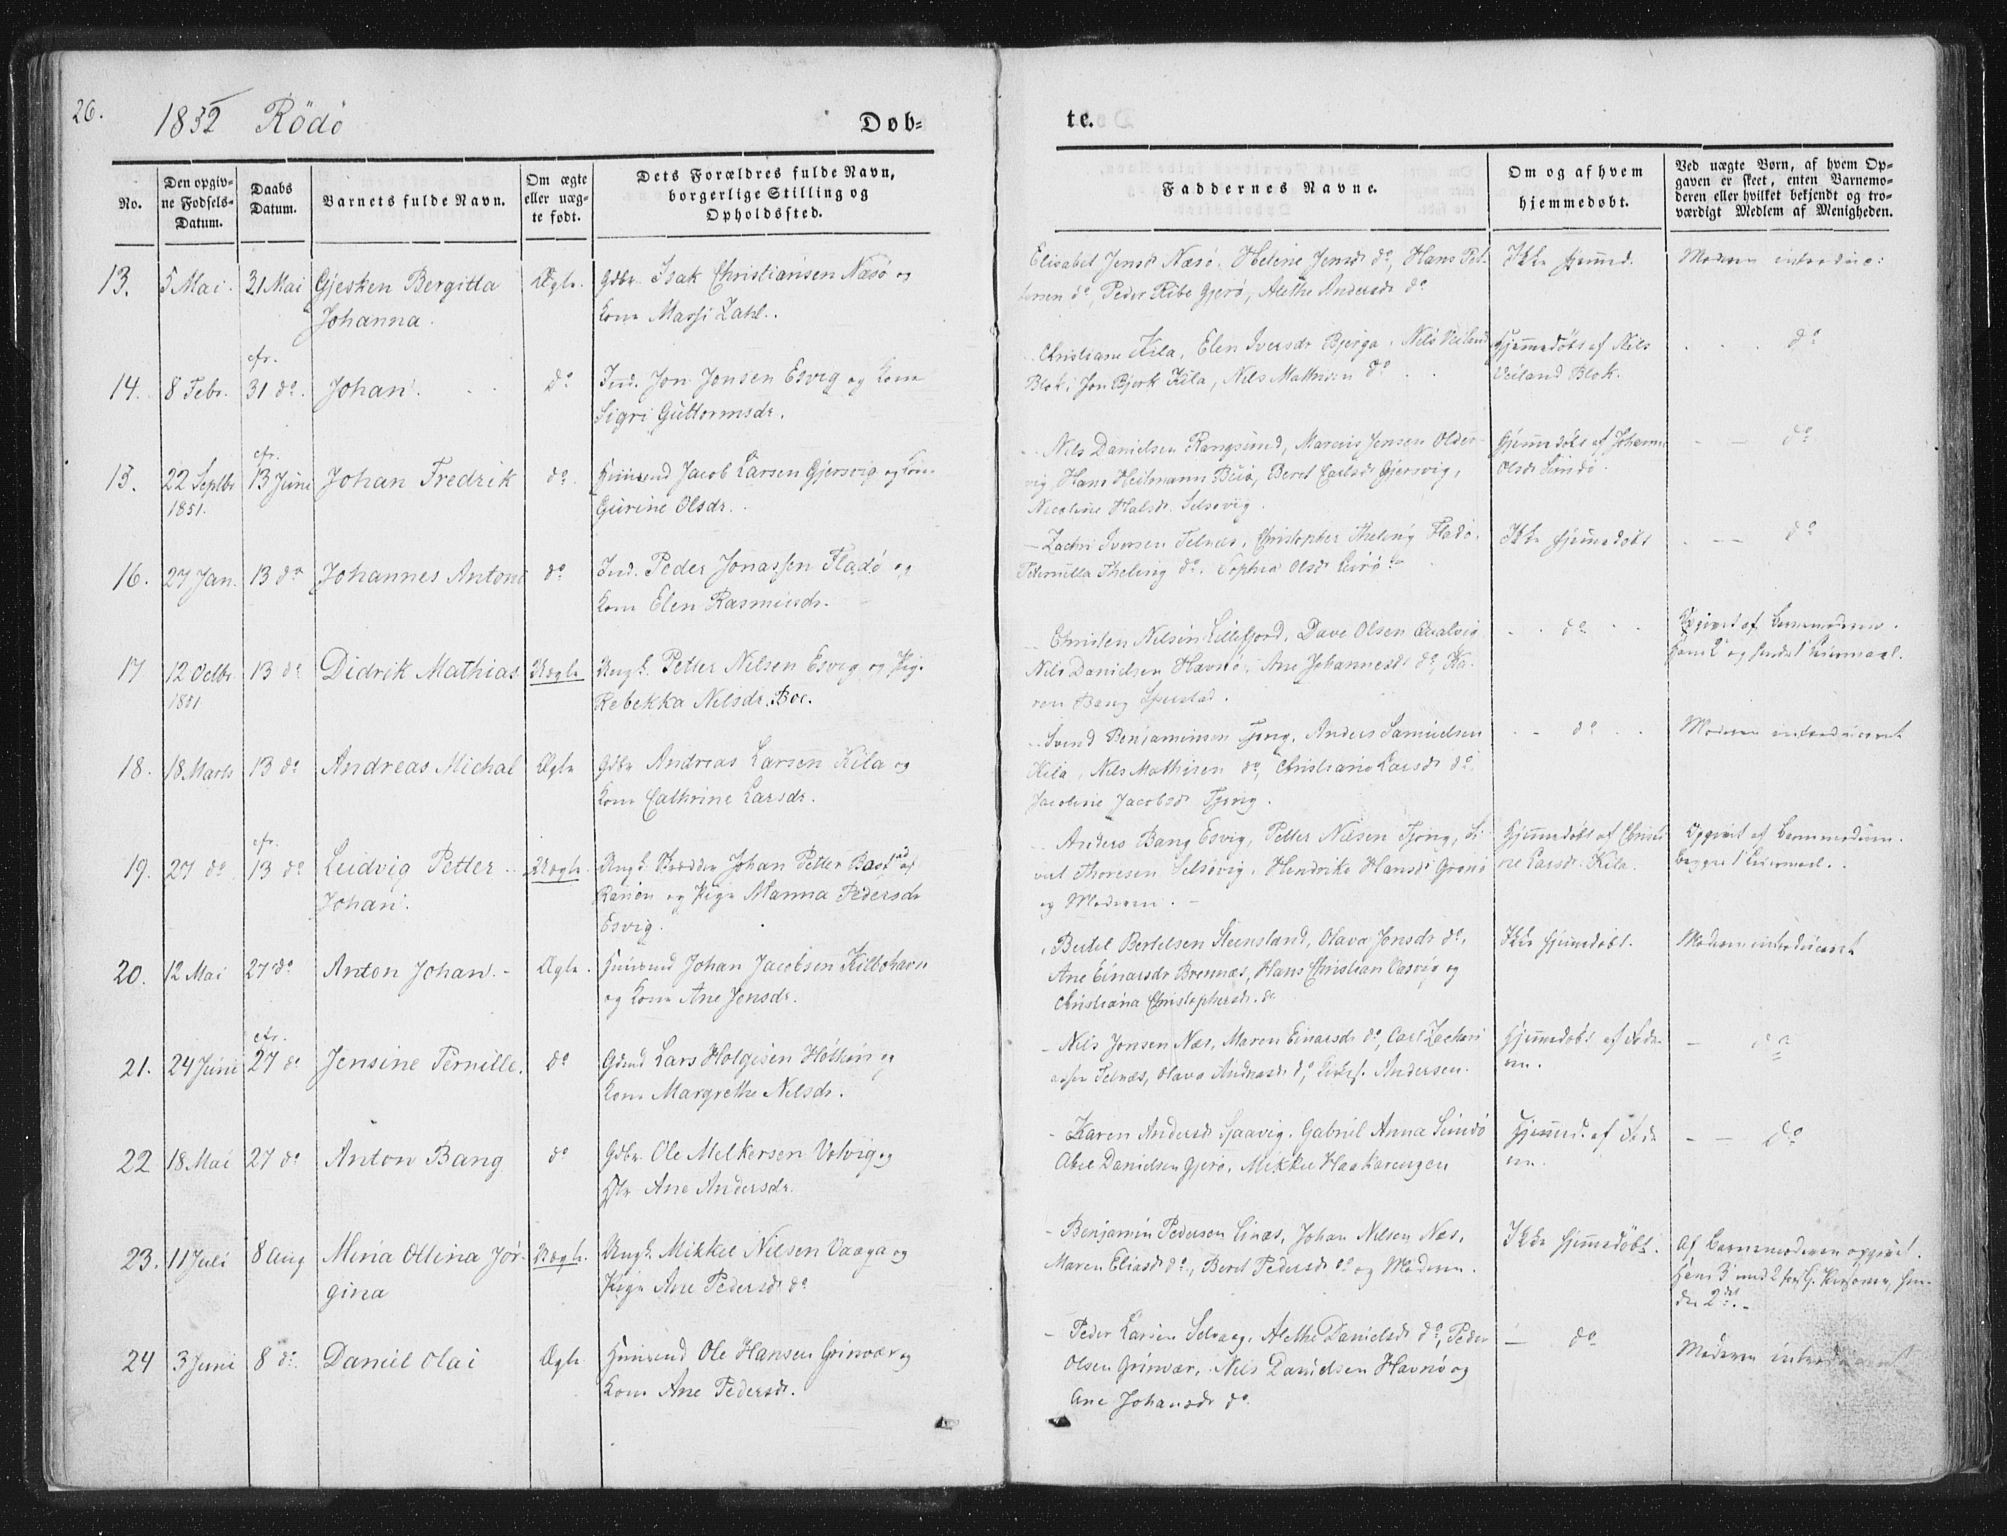 26.
1832 Rödö
Døb-
te.
No.
Den opgiv-
ne Fødsels-
Datum.
Daabs
Datum.
Barnets fulde Navn.
Om ægte
eller uæg-
te født.
Dets Forældres fulde Navn,
borgerlige Stilling og
Opholdssted.
Faddernes Navne.
Om og af hvem
hjemmedøbt.
Ved uægte Børn, af hvem Op-
gaven er skeet, enten Barnemo-
deren eller hvilket bekjendt og tro-
værdigt Medlem af Menigheden.
13. 5 Mai. 21 Mai Gjesken Bergitta Ægte. Gdbr. Isak Christiansen Næsö og
Johanna. Kone Massi Zahl.
Elisabet Jensd. Næsö. Helene Jensd. do, Hans Pet-
tersen do, Peder Ribe Gjerö, Alethe Andersd. do
Ikke hjemmed.
Moderen introduc:
cfr.
14. 8 Febr. 31 do. Johan. do Ind. Jon Jonsen Esvig og Kone
Sigri Guttormsdr.
Christiane Kila, Elen Iversdr Bjerga, Nils Veiland
Blok, Jon Bjerk Kila, Nils Mathisen do
Hjemmedöbt af Nils
Veiland Blok.
do
cfr.
15. 22 Septbr 13 Juni Johan Fredrik do. Huusmd Jacob Larsen Gjersvig og Kone
1851. Gurine Olsdr.
Nils Danielsen Rangsund, Marcus Jensen Older-
vig, Hans Heitmann Buö, Beret Carlsd. Gjersvig,
Nicoline Halsd. Selsövig.
Hjemmedöbt af Johanne
Olsd. Sundö.
do
16. 27 Jan. 13 do Johannes Antoni do Ind. Peder Jonassen Fladö og
Kone Elen Rasmusdr.
Zachri Iversen Telnæs, Christopher Theling Fladö,
Pernilla Theling do. Sophia Olsd.
Ikke hjemmedöbt
do
17 12 Octbr. 13 do Didrik Mathias Uægte Ungk. Petter Nilsen Esvig og Pig.
1851 Rebekka Nilsdr. Boe.
Christen Nilsen Lillefjord, Dave Olsen Qualvig
Nils Danielsen Havnö, Ane Johannesd. do, Ka-
ren Bang
do
Opgivet af Barnemoderen.
Hans 2 og hendes 1 Leiermaal.
18. 18 Marts 13 do Andreas Michal Ægte Gdbr Andreas Larsen Kila og
Kone Cathrine Larsdr.
Svend Benjaminsen Tjong, Anders Samuelsen
Kila, Nils Mathisen do, Christiane Larsd. do,
Jacobine Jacobsd. Tjong.
do
Moderen introduceret
cfr.
19. 27 do 13 do Ludvig Petter Uægte. Ungk. Johan Petter Bast
Johan. Ranen og Pige Manna Pedersdr
Esvig.
Anders Bang Esvig, Petter Nilsen Tjong, Si-
vert Thoresen Selsövig, Hendrike Hansd. Grönö
og Moderen.
Hjemmedöbt af Christi-
ne Larsd. Kila.
Opgivet af Barnemoderen.
begges 1 Leiermaal.
20. 12 Mai 27 do Anton Johan. Ægte. Huusmd Johan Jacobsen Kilbohavn
og Kone Ane Jonsdr.
Bertel Bertelsen Steensland, Olava Jonsdr do,
Ane Einarsdr Brennæs, Hans Christian Vasvig og
Christiana Christophersdr. do
Ikke hjemmedöbt.
Moderen introduceret
cfr.
21. 24 Juni 27 do Jensine Pernille. do Gdmd Lars Holgersen og
Kone Margrethe Nilsdr.
Nils Jonsen Næs, Maren Einarsdr do, Carl Zachari-
assen Telnæs, Olava Andreasd. do, Andersen.
Hjemmedöbt af Fade-
ren.
do
22 18 Mai 27 do Anton Bang do Gdbr. Ole Melkersen Valvig og
Ane Andersdr.
Karen Andersd. Spaavig. Gabriel Anna Sundö
Abel Danielsen Gjerö, Mikkel Haakarengen
Hjemmed. af Fade-
ren.
do
23. 11 Juli 8 Aug Miria Ollina Jör- Uægte. Ungk. Mikkel Nilsen Vaaga og
gina Pige Ane Pedersd. do
Benjamin Pedersen Sinæs, Johan Nilsen Næs,
Maren Eliasd. do., Beret Pedersd. do og Moderen.
Ikke hjemmedöbt.
Af Barnemoderen opgivet.
Hans 3 med 2 forskj. Personer, hen-
des 2det.
24 3 Juni 8 do Daniel Olai Ægte. Huusmd Ole Hansen Grinvær og
Kone Ane Pedersdr.
Peder Larsen Selvaag, Alethe Danielsd. do, Peder
Olsen Grinvær, Nils Danielsen Havnö og
Ane Johansd. do.
do
Moderen introduceret